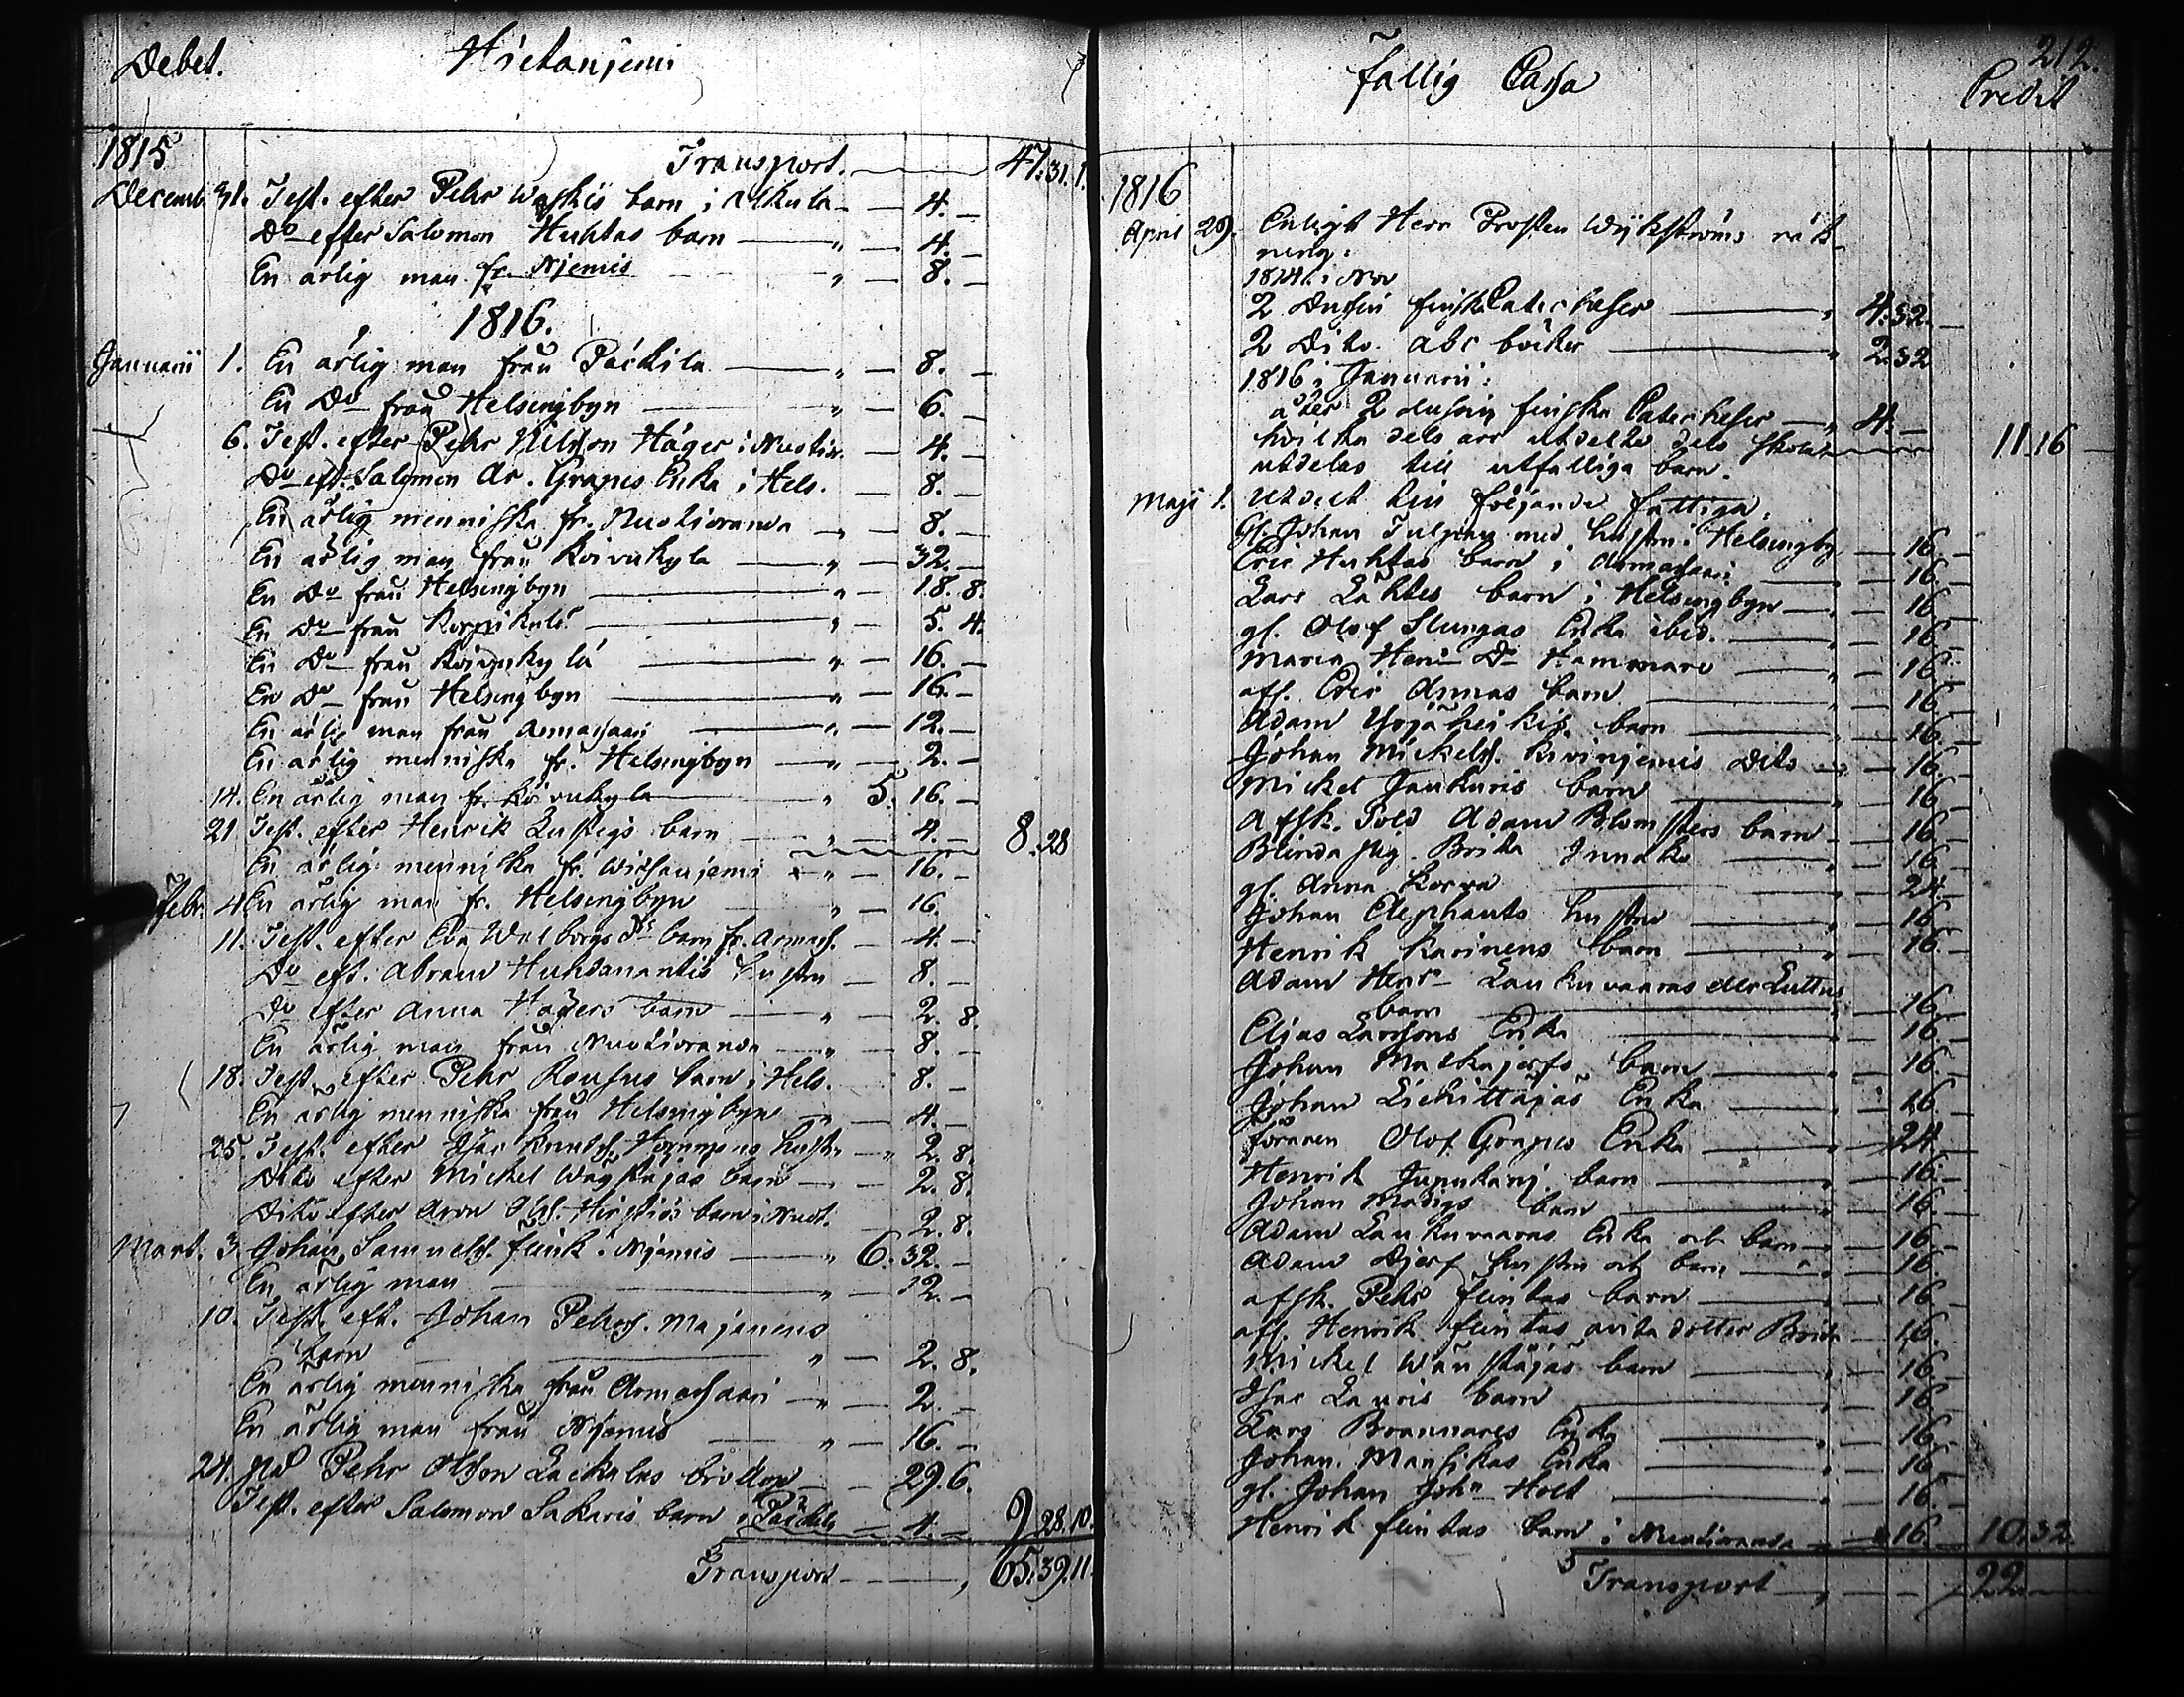 Debet. Hietaniemi
1815 Transport. 47:31.1.
Decemb. 31. Test. efter Pehr barn i Alkula 4.
Do efter Salomon Huhtas barn " 4.
En ärlig man fr. Njemis " 8.
1816.
Januarii 1. En ärlig man från Päckila " 8.
En Do från Helsingbyn " 6.
6. Test. efter Pehr Nilsson Häger i Nuotior. 4.
Do eft. Salomon Ar. Grapes Enka i Hels. 8.
En ärlig menniska fr. Nuotioranda " 8.
En ärlig man från Koivukyla " 32.
En Do från Helsingbyn " 18. 8.
En Do från Korpikylä " 5. 4.
En Do från Koivukylä " 16.
En Do från Helsingbyn " 16.
En ärlig man från Armasaari " 12.
En ärlig menniska fr. Helsingbyn " 2.
14. En ärlig man fr. Koivukyla " 5. 16.
21 Test. efter Henrik Lustigs barn " 4. 8.28
En ärlig menniska fr. " 16.
Febr. 4 En ärlig man fr. Helsingbyn " 16.
11. Test. efter Eva Walborgs Dr barn fr. Armas. 4.
Do eft. Abram Huhdanantis hustru 8.
Do efter Anna Hägers barn " 2. 8.
En ärlig man från Nuotioranda " 8.
18. Test. efter Pehr barn i Hels. 8.
En ärlig menniska från Helsingbyn " 4.
25. Test. efter Isac hustru " 2. 8.
Dito efter Mickel barn 2. 8.
Dito efter Aron barn i Nuot. 2. 8.
Mart. 3. Johan Samuels. Flink i Njemis " 6. 32.
En ärlig man " 12.
10. Test. eft. Johan Pehrs. Majanens
barn " 2. 8.
En ärlig menniska från Armassaari " 2.
En ärlig man från Njemis " 16.
24. På Pehr Olsson Lackalas bröllop 29. 6.
Test. efter Salomon Sakaris barn i Päckila 4. 9 28.10.
Transport , 65.39.11.
Fattig Cassa 212.
Credit
1816
April 29. Enligt Herr Prosten Wijkströms räk-
ning:
1814 i Nov
2 Dussin finska Catecheser " 4:32.
2 Dito. abc böcker " 2:32
1816 i Januarii:
åter 2 dussin finska Catecheser " 4.
hvilka dels äro utdelte dels skola 11.16
utdelas till utfattiga barn.
Maji 1. Utdelt till följande fattiga:
Gl. Johan med hustru i Helsingby 16.
Eric Huhtas barn i Armassaari 16.
Lars Lahtis barn i Helsingbyn 16.
gl. Olof Slungas Enka ibid. 16.
Maria Henr Dr Hammare 16.
afl. Eric Annas barn 16.
Adam barn 16.
Johan Mickels. Kivinjemis Dito 16.
Mickel Jaukuris barn 16.
Afsk. Sold Adam Blomsters barn 16.
Blinda Pig. Brita 16.
gl. Anna Korva 24.
Johan Elephants hustru 16.
Henrik Karinens barn 16.
Adam Henr Laukuvaaras eller Luttus
barn 16.
Elias Larssons Enka 16.
Johan Matkajerfs barn 16.
Johan Liehittäjäs Enka 16.
förraren Olof Grapes Enka 24.
Henrik barn 16.
Johan Madigs barn 16.
Adam Laukuvaaras Enka och barn 16.
Adam Djerf hustru och barn 16.
afsk. Pehr Flinkas barn 16.
afl. Henrik Flinkas dotter Brita 16.
Mickel barn 16.
Isac Lauris barn 16.
Lars Brannares Enka 16.
Johan Mansikas Enka 16.
gl. Johan John Holt 16.
Henrik Flinkas barn i Nuotioranda 16. 10.32
Transport 22.